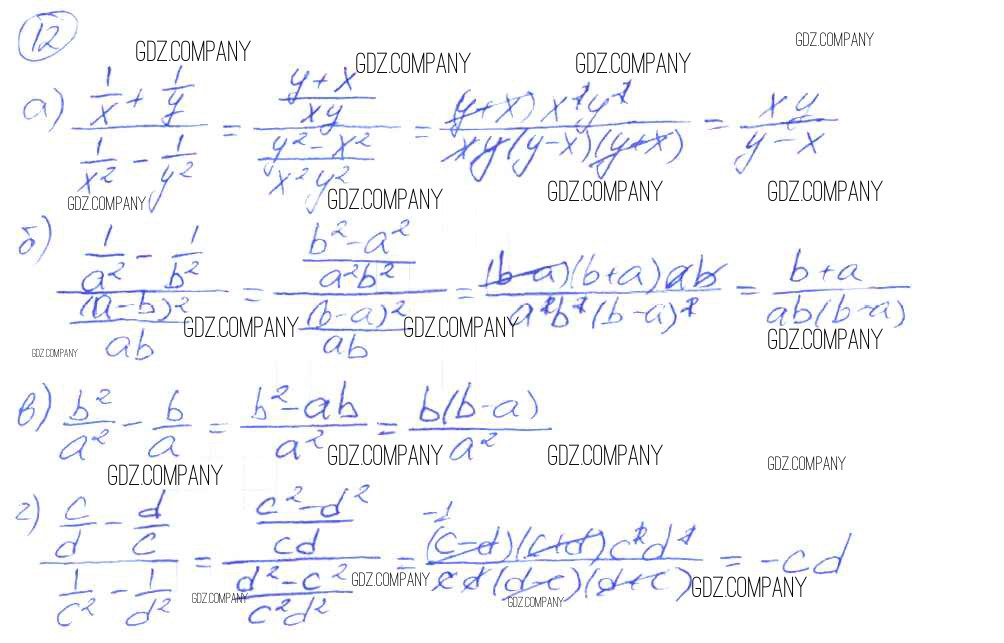 12
GDZ.COMPANY GDZ.COMPANY GDZ.COMPANY GDZ.COMPANY
а) (1/x + 1/y)/(1/x² - 1/y²) = ((y+x)/(xy))/((y²-x²)/(x²y²)) = ((y+x)x²y²)/(xy(y-x)(y+x)) = xy/(y-x)
GDZ.COMPANY GDZ.COMPANY GDZ.COMPANY GDZ.COMPANY
б) (1/a² - 1/b²)/((a-b)²/(ab)) = ((b²-a²)/(a²b²))/((b-a)²/(ab)) = ((b-a)(b+a)ab)/(a²b²(b-a)²) = (b+a)/(ab(b-a))
GDZ.COMPANY GDZ.COMPANY GDZ.COMPANY GDZ.COMPANY
в) b²/a² - b/a = (b²-ab)/a² = b(b-a)/a²
GDZ.COMPANY GDZ.COMPANY GDZ.COMPANY GDZ.COMPANY
г) (c/d - d/c)/(1/c² - 1/d²) = ((c²-d²)/(cd))/((d²-c²)/(c²d²)) = -1 ((c-d)(c+d)c²d²)/(cd(d-c)(d+c)) = -cd
GDZ.COMPANY GDZ.COMPANY GDZ.COMPANY GDZ.COMPANY